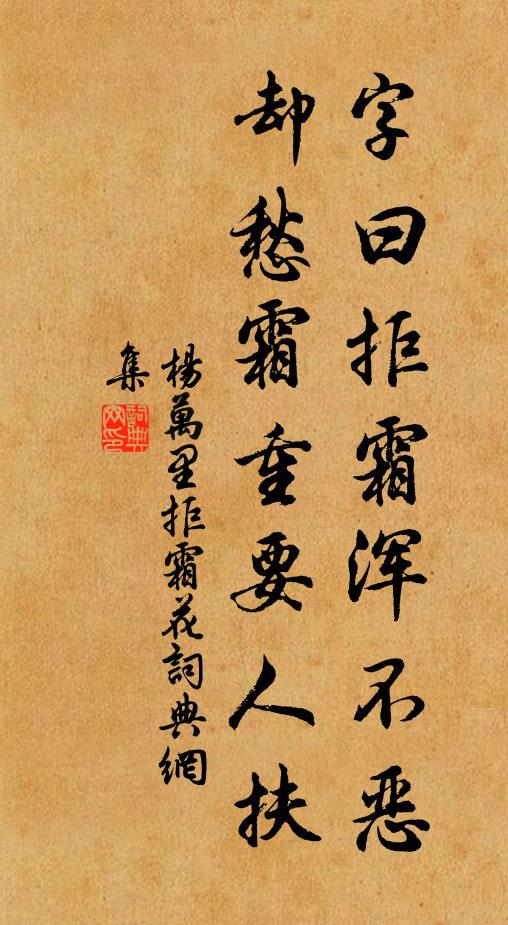 字曰拒霜浑不恶
却愁霜重要人扶
楊萬里拒霜花詞典網
集
詞典網印